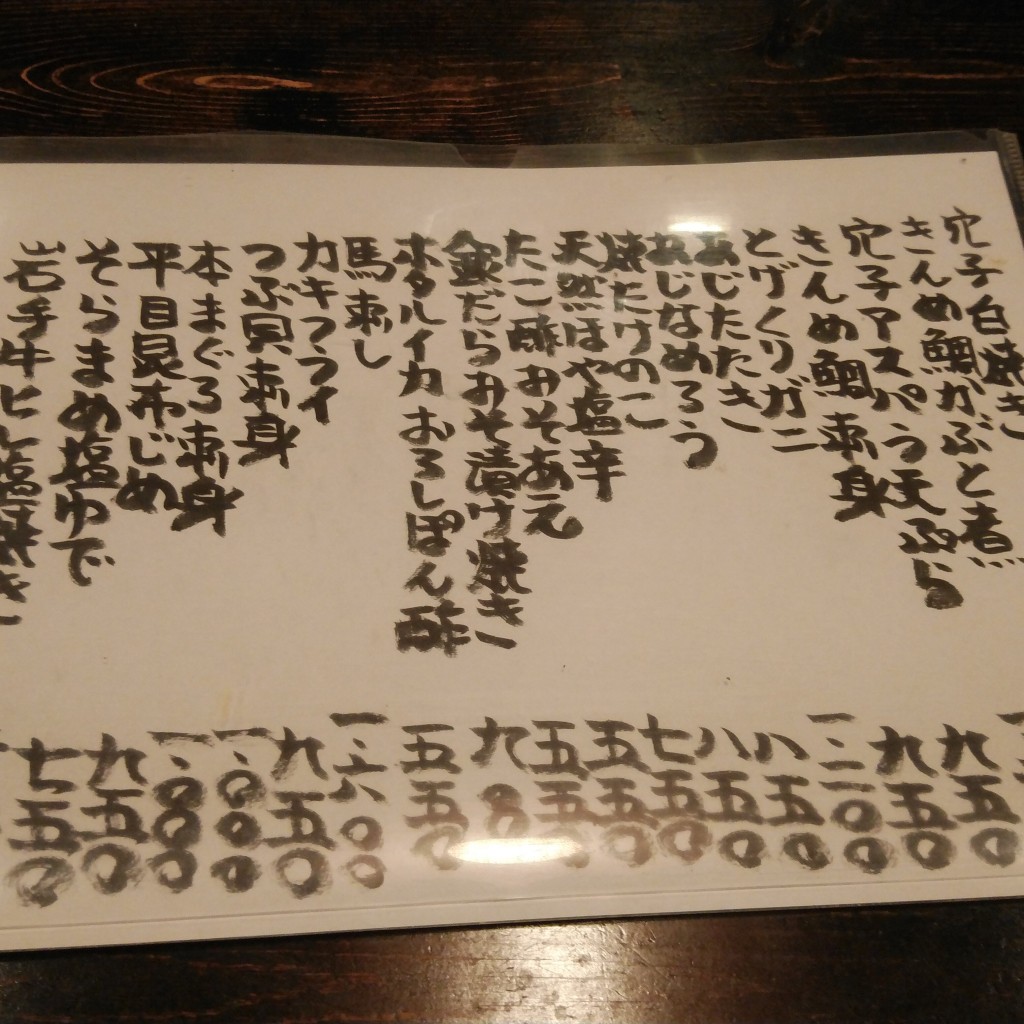 穴子白焼き
きんめ鯛かぶと煮
穴子アスパラ天ぷら
きんめ鯛刺身
とげくりガニ
あじたたき
あじなめろう
焼たけのこ
天然ほや塩辛
たこ酢みそあえ
銀だらみそ漬け焼き
ホタルイカおろしぽん酢
馬刺し
カキフライ
つぶ貝刺身
本まぐろ刺身
平目昆布じめ
そらまめ塩ゆで
岩手牛ヒレ塩焼き
九五〇
九五〇
一、二〇〇
八五〇
八五〇
七五〇
五五〇
五五
九〇
五五〇
一、六〇〇
九五〇
一、〇〇〇
一、〇〇〇
九五〇
七五〇